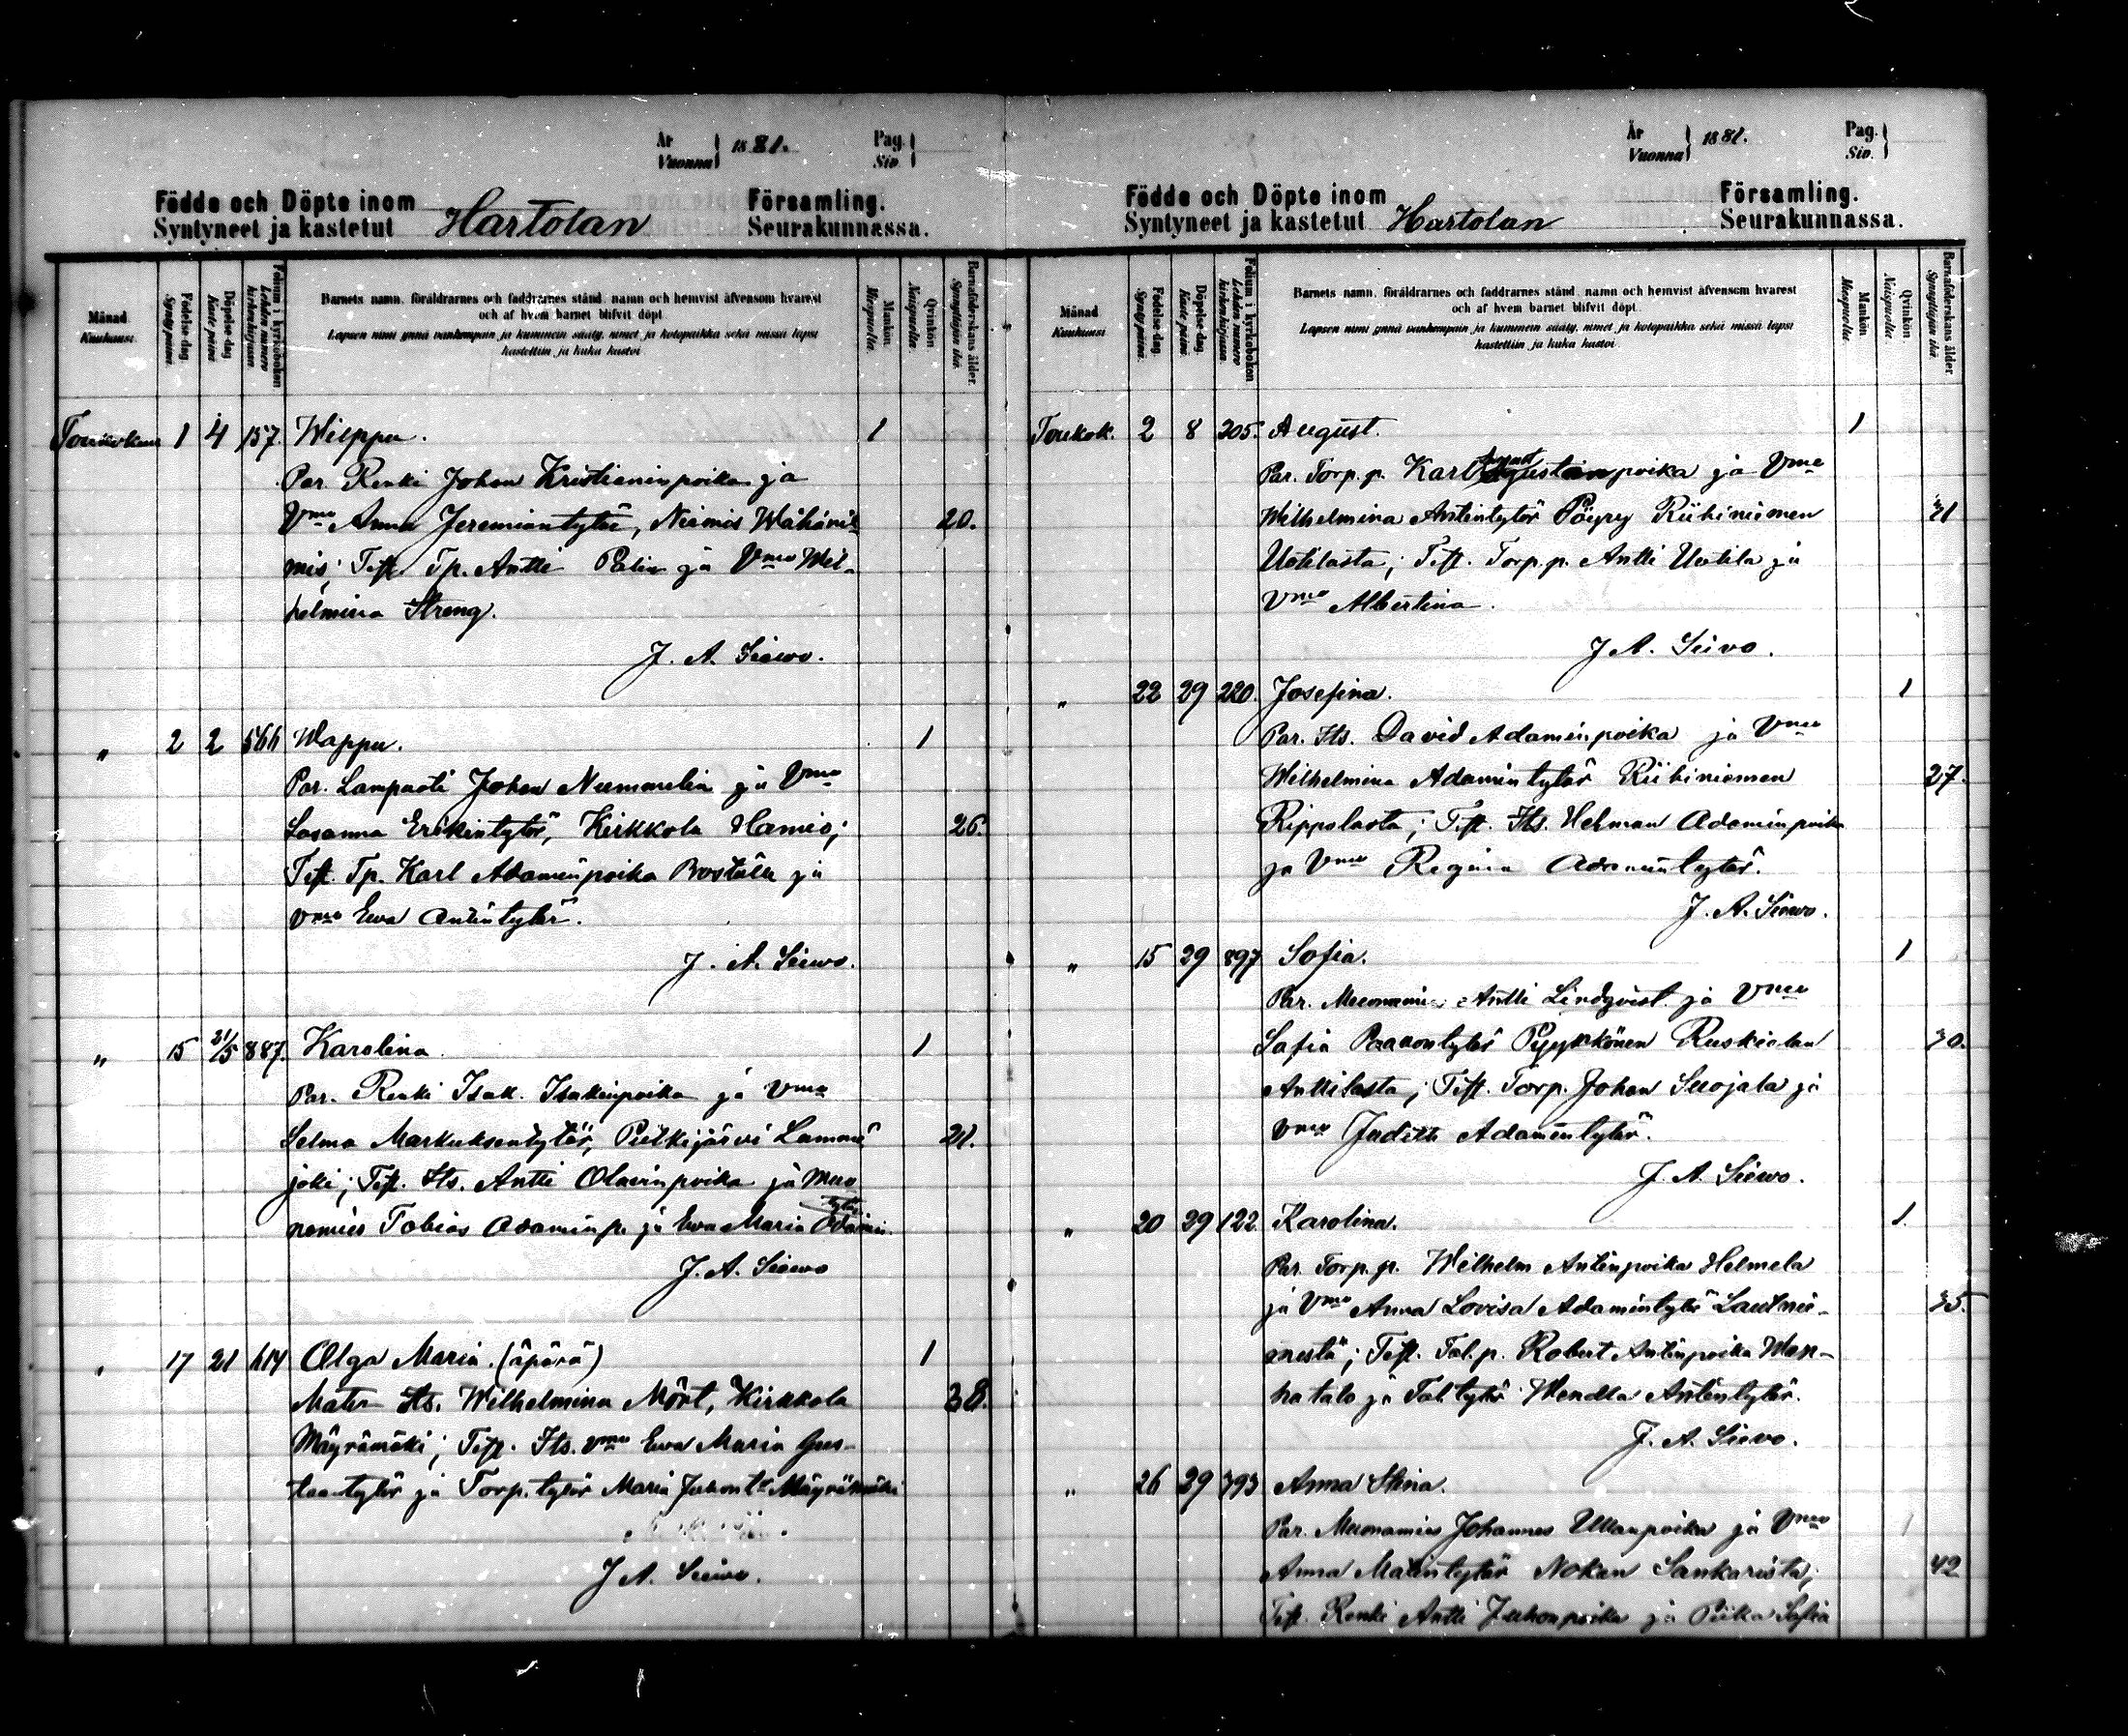 År
Vuonna } 1881.
Pag.
Siv. }
Födde och Döpte inom
Syntyneet ja kastetut Hartolan
Församling.
Seurakunnassa.
Månad
Kuukausi.
Födelse dag.
Synty päivä.
Döpelse dag
Kaste päivä
Folium i kyrkoboken
Lehden numero
kirkonkirjassa
Barnets namn, föräldrarnes och faddrarnes stånd, namn och hemvist äfvensom hvarest
och af hvem barnet blifvit döpt
Lapsen nimi ynnä vanhempain ja kummein sääty, nimet ja kotopaikka sekä missä lapsi
kastettiin ja kuka kastoi
Mankön.
Miespuolta.
Qvinkön.
Naispuolta.
Barnaföderskans ålder.
Synnyttäjän ikä.
Toukokuu 1 4 157. Wilppu. 1
Par. Renki Johan Kristianinpoika ja
Vmo Anna Jeremiantytär, Niemis 20.
mis; Test. Tp. Antti Palin ja Vmo Wil-
helmina Streng.
J. A. Siewo.
" 2 2 566 Wappu. 1
Par. Lampuoti Johan Nummelin ja Vmo
Susanna Erikintytär, Kirkkola Hamio; 26.
Test. Tp. Karl Adaminpoika ja
Vmo Ewa Antintytär.
J. A. Siewo.
" 15 21/5 887. Karolina
Par. Renki Isak. Isakinpoika ja Vmo
Selma Markuksentytär, Putkijärvi 21.
joki; Test. Its. Antti Olavinpoika ja Muo
namies Tobias Adaminp. ja Ewa Maria Adamin
tytär
J. A. Siewo
" 17 21 614 Olga Maria. (äpärä) 1
Mater Its. Wilhelmina Mört, Kirkkola 38.
Mäyrämäki; Test. Its. vmo Ewa Maria Gus-
taatytär ja Torp. tytär Maria Juhont. Mäyrämäki
J A. Siewo.
År
Vuonna } 1881.
Pag.
Siv. }
Födde och Döpte inom
Syntyneet ja kastetut Hartolan
Församling.
Seurakunnassa.
Månad
Kuukausi
Födelse dag
Synty päivä.
Döpelse dag.
Kaste päivä.
Folium i kyrkoboken
Lehden numero
kirkonkirjassa
Barnets namn, föräldrarnes och faddrarnes stånd, namn och hemvist äfvensom hvarest
och af hvem barnet blifvit döpt.
Lapsen nimi ynnä vanhempain ja kummein sääty, nimet ja kotopaikka sekä missä lapsi
kastettiin ja kuka kastoi
Mankön
Miespuolta.
Qvinkön
Naispuolta
Barnaföderskans ålder.
Synnyttäjän ikä.
Toukok. 2 8 205. August. 1
Par. Torp. p. Karl August poika ja Vmo
Wilhelmina Antintytär Pöyry Riihiniemen 31
Uotilasta; Test. Torp. p. Antti Uotila ja
Vmo Albertina.
J A. Seivo.
" 22 29 220. Josefina. 1
Par. Its. David Adaminpoika ja Vmo
Wilhelmina Adamintytär Riihiniemen 27.
Rippolasta; Test. Its. Herman Adaminpoika
ja Vmo Regina Adamintytär.
J. A. Siewo.
" 15 29 897 Sofia. 1
Par. Muonamies Antti Lindqvist ja Vmo
Sofia Paavontytär Pyykkönen Ruskealan 30.
Anttilasta; Test. Torp. Johan Suojala ja
vmo Judith Adamintytär.
J. A. Siewo.
" 20 29 122 Karolina. 1.
Par. Torp. p. Wilhelm Antinpoika Helmela
ja Vmo Anna Lovisa Adamintytär Lautnie- 35.
mestä; Test. Tal. p. Robert Antinpoika Wan-
ha talo ja Tal. tytär Wendla Antintytär.
J. A. Siewo.
" 26 29 393 Anna Stina.
Par. Muonamies Johannes Ullanpoika ja Vmo
Anna Matintytär Nokan Sankarista; 42
Test. Renki Antti Juhonpoika ja Piika Sofia